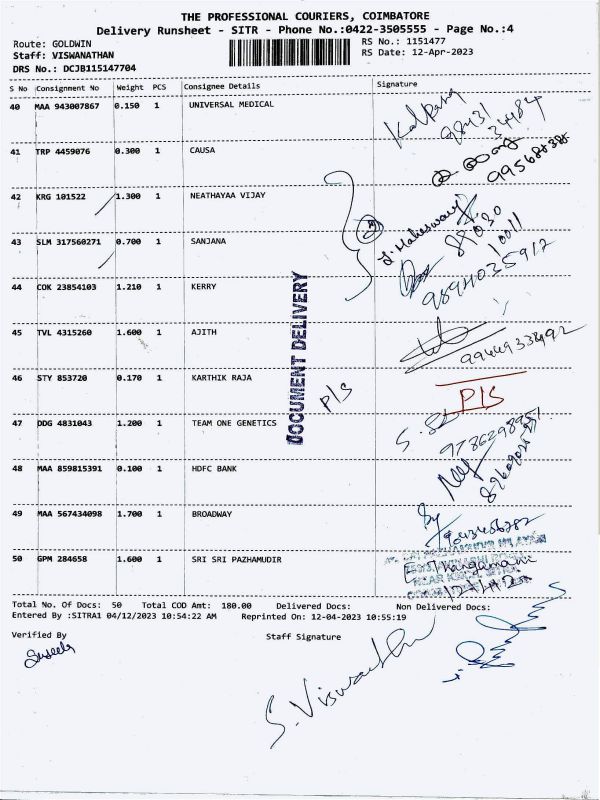 THE PROFESSIONAL COURIERS, COIMBATORE
Delivery Runsheet - SITR - Phone No.:0422-3505555 - Page No.:4
Route: GOLDWIN RS No.: 1151477
Staff: VISWANATHAN RS Date: 12-Apr-2023
DRS No.: DCJB115147704
S No Consignment No Weight PCS Consignee Details Signature
40 MAA 943007867 0.150 1 UNIVERSAL MEDICAL
Kalpana
98431
34484
41 TRP 4459076 0.300 1 CAUSA
42 KRG 101522 1.300 1 NEATHAYAA VIJAY
J. Maheswari
43 SLM 317560271 0.700 1 SANJANA
10011
9894035912
44 COK 23854103 1.210 1 KERRY
DOCUMENT DELIVERY
45 TVL 4315260 1.600 1 AJITH
9944933492
46 STY 853720 0.170 1 KARTHIK RAJA P/S P/S
47 DDG 4831043 1.200 1 TEAM ONE GENETICS
48 MAA 859815391 0.100 1 HDFC BANK
49 MAA 567434098 1.700 1 BROADWAY
50 GPM 284658 1.600 1 SRI SRI PAZHAMUDIR
Total No. Of Docs: 50 Total COD Amt: 180.00 Delivered Docs: Non Delivered Docs:
Entered By :SITRA1 04/12/2023 10:54:22 AM Reprinted On: 12-04-2023 10:55:19
Verified By Staff Signature
Suseela
S. Viswanathan